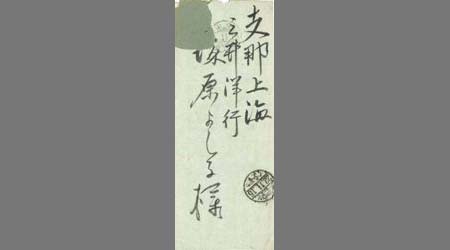 支那上海
三井洋行
原よし子様